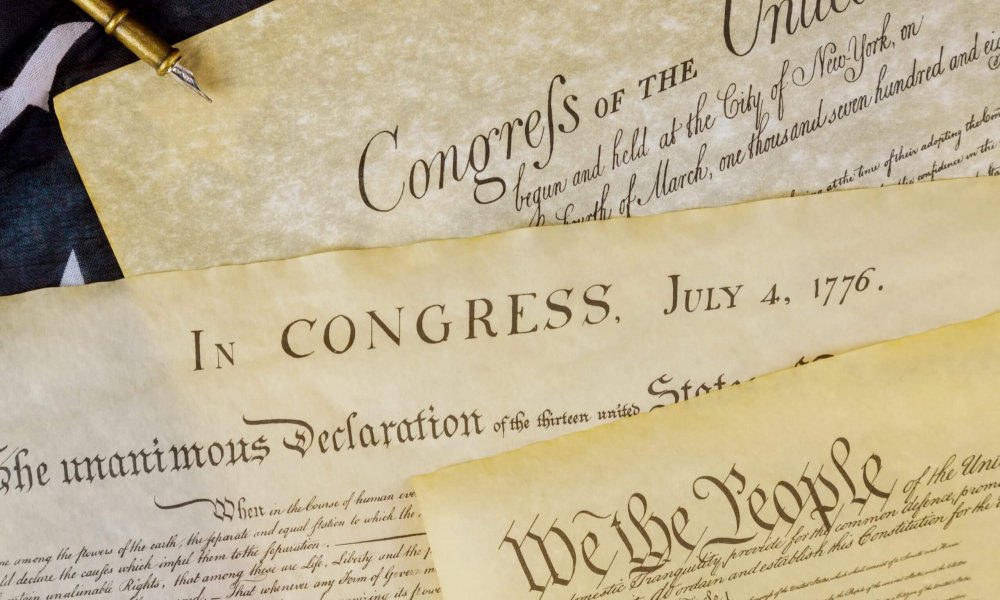 Congreſs OF THE
begun and held at the City of New-York, on
Fourth of March, one thousand seven hundred and
at the time of their adopting the
confidence in the
IN CONGRESS, JULY 4, 1776.
The unanimous Declaration of the thirteen united States
When in the Course of human
among the powers of the earth, the ſeparate and equal ſtation to which the
declare the cauſes which impel them to the ſeparation.
unalienable Rights, that among theſe are Life, Liberty and the
— That whenever any Form of
its
We the People of the
domestic Tranquility, provide for the common defence,
ordain and establish this Constitution for the